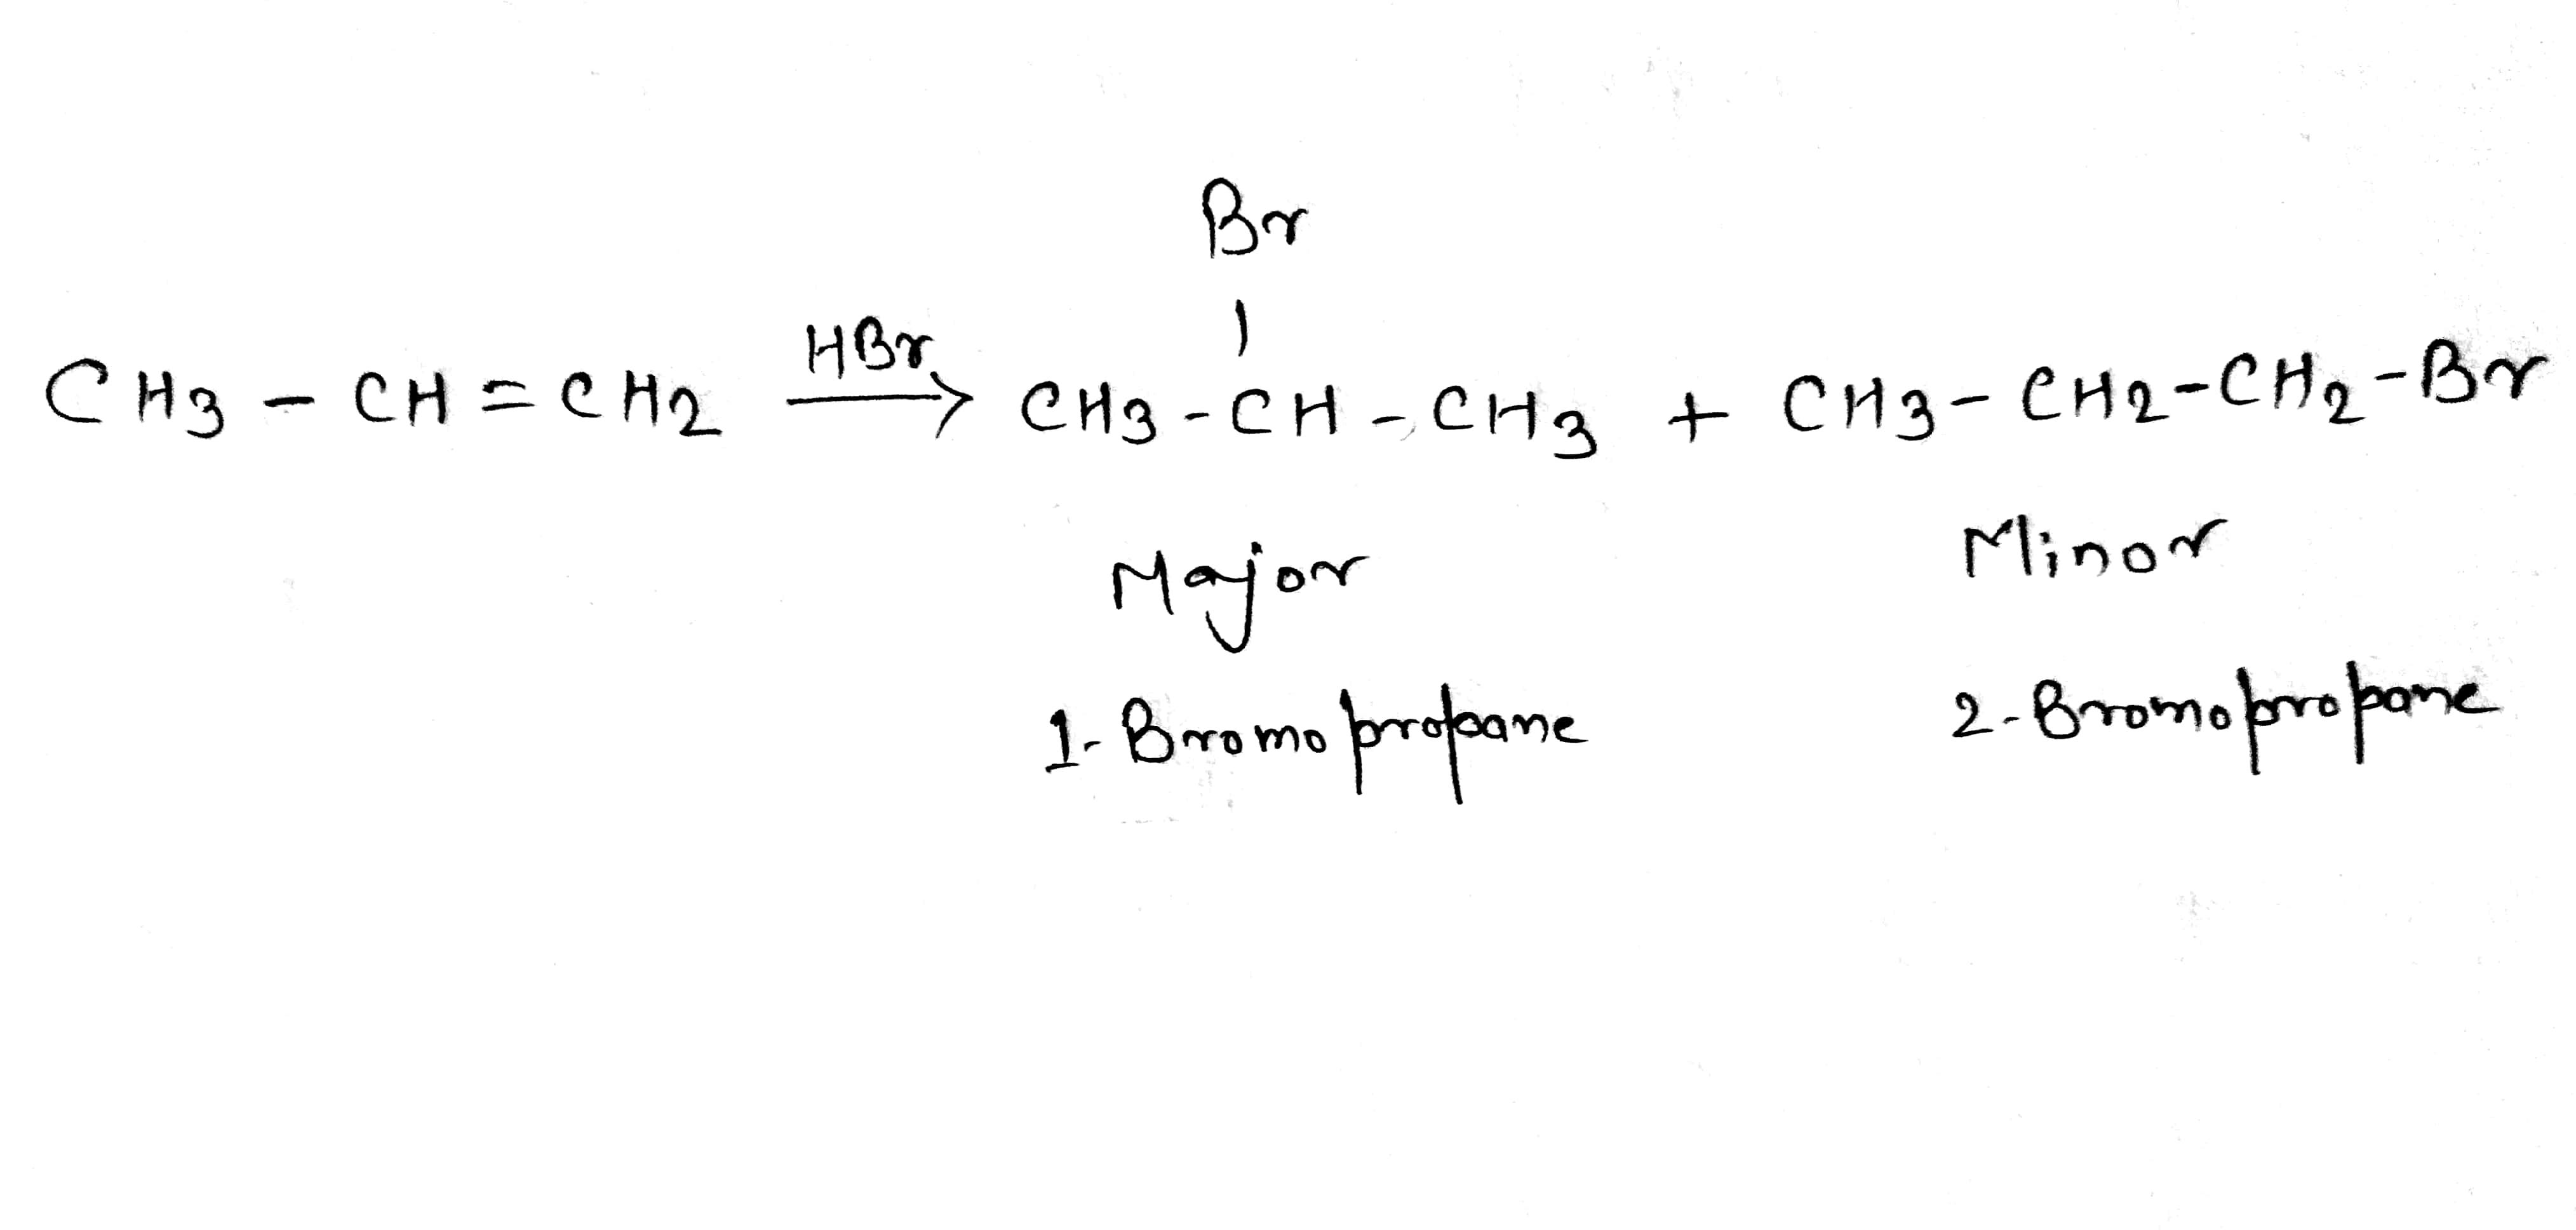 Br
|
CH3 - CH = CH2 HBr → CH3 - CH - CH3 + CH3 - CH2 - CH2 - Br
Major Minor
1- Bromopropane 2- Bromopropane